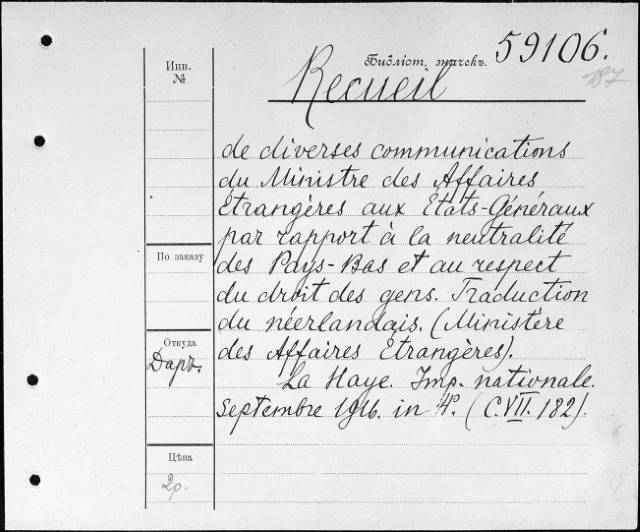 Инв.
№
Библіот. значекъ.
59106.
187
Recueil
de diverses communications
du Ministre des Affaires
Étrangères aux États-Généraux
par rapport à la neutralité
des Pays-Bas et au respect
du droit des gens. Traduction
du néerlandais. (Ministère
des Affaires Étrangères).
La Haye. Imp. nationale.
Septembre 1916. in 4°. (C.VII.182).
По заказу
Откуда
Даръ.
Цѣна
2р.